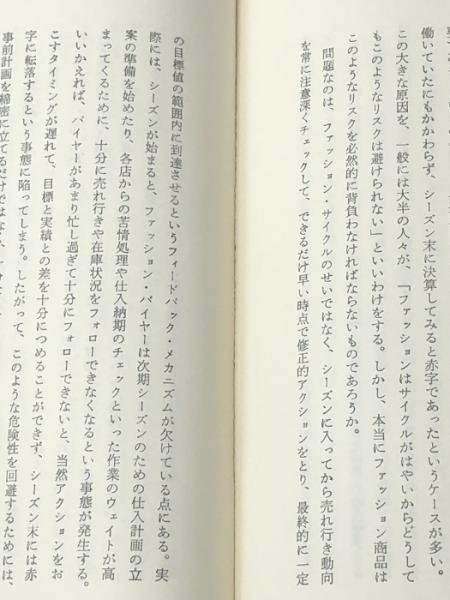 働いていたにもかかわらず、シーズン末に決算してみると赤字であったというケースが多い。
この大きな原因を、一般には大半の人々が、「ファッションはサイクルがはやいからどうして
もこのようなリスクは避けられない」といいわけをする。しかし、本当にファッション商品は
このようなリスクを必然的に背負わなければならないものであろうか。
問題なのは、ファッション・サイクルのせいではなく、シーズンに入ってから売れ行き動向
を常に注意深くチェックして、できるだけ早い時点で修正的アクションをとり、最終的に一定
の目標値の範囲内に到達させるというフィードバック・メカニズムが欠けている点にある。実
際には、シーズンが始まると、ファッション・バイヤーは次期シーズンのための仕入計画の立
案の準備を始めたり、各店からの苦情処理や仕入納期のチェックといった作業のウェイトが高
まってくるために、十分に売れ行きや在庫状況をフォローできなくなるという事態が発生する。
いいかえれば、バイヤーがあまり忙し過ぎて十分にフォローできないと、当然アクションをお
こすタイミングが遅れて、目標と実績との差を十分につめることができず、シーズン末には赤
字に転落するという事態に陥ってしまう。したがって、このような危険性を回避するためには、
事前計画を綿密に立てるだけではなく、